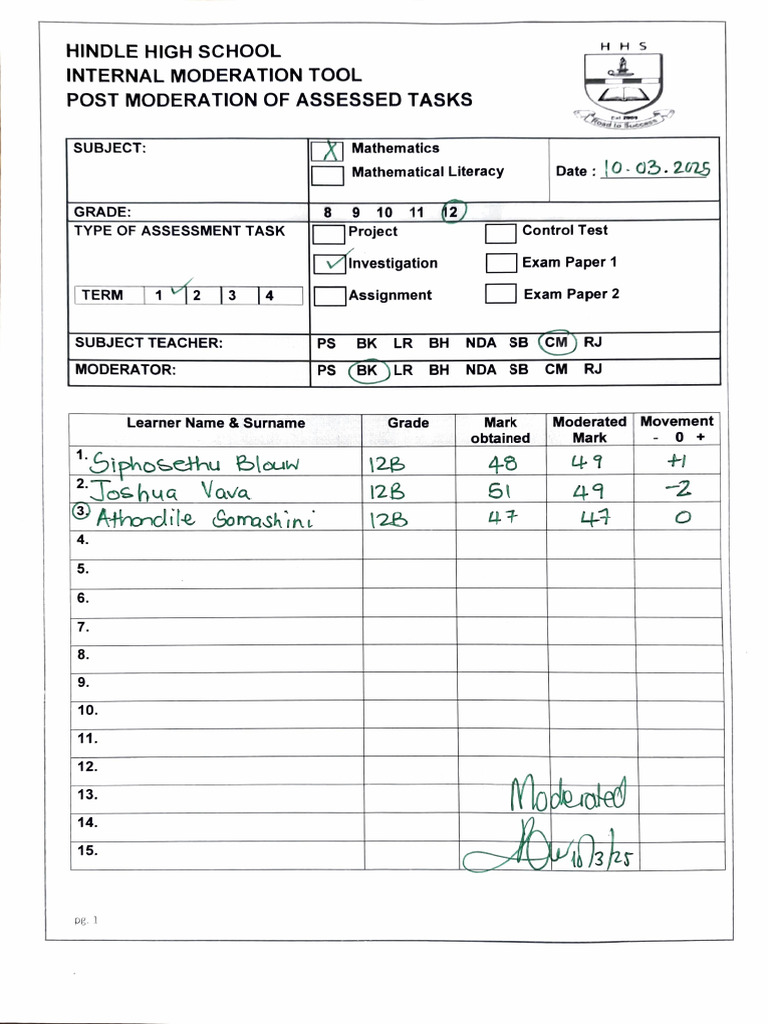 HINDLE HIGH SCHOOL
INTERNAL MODERATION TOOL
POST MODERATION OF ASSESSED TASKS
H H S
Est 2009
Road to Success
SUBJECT:
X Mathematics
Mathematical Literacy
Date : 10.03.2025
GRADE: 8 9 10 11 12
TYPE OF ASSESSMENT TASK
Project Control Test
✓ Investigation Exam Paper 1
TERM 1 ✓ 2 3 4
Assignment Exam Paper 2
SUBJECT TEACHER: PS BK LR BH NDA SB CM RJ
MODERATOR: PS BK LR BH NDA SB CM RJ
Learner Name & Surname Grade Mark obtained Moderated Mark Movement - 0 +
1. Siphosethu Blouw 12B 48 49 +1
2. Joshua Vava 12B 51 49 -2
3. Athandile Gomashini 12B 47 47 0
4.
5.
6.
7.
8.
9.
10.
11.
12.
13. Moderated
14.
15. 10/3/25
pg. 1